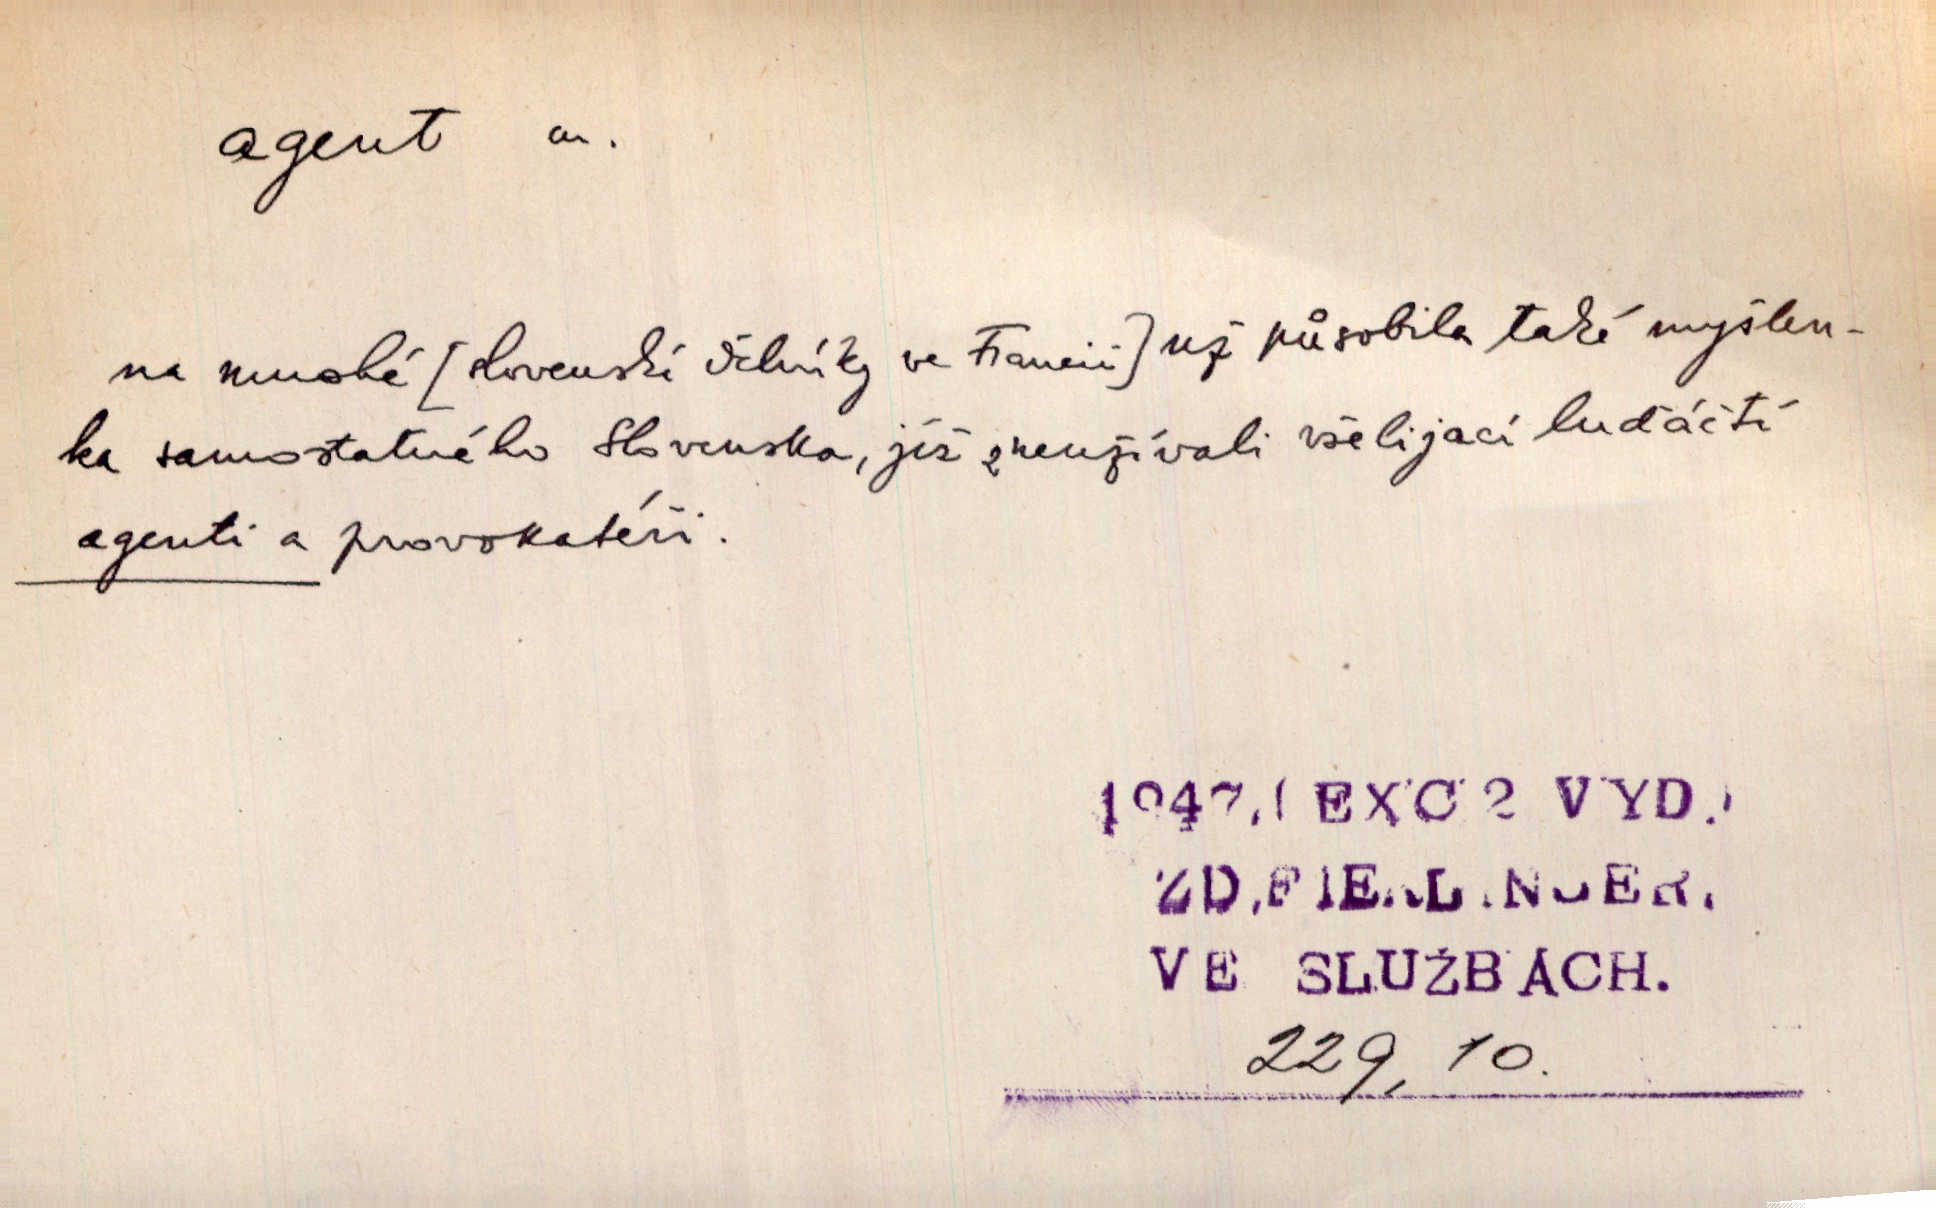 agent m.
na mnohé [slovenské dělníky ve Francii] už působila také myšlen-
ka samostatného Slovenska, jíž zneužívali všelijací luďáčtí
agenti a provokatéři.
1947. (EXC 2 VYD.)
ZD. FIERLINGER.
VE SLUŽBÁCH.
229, 10.